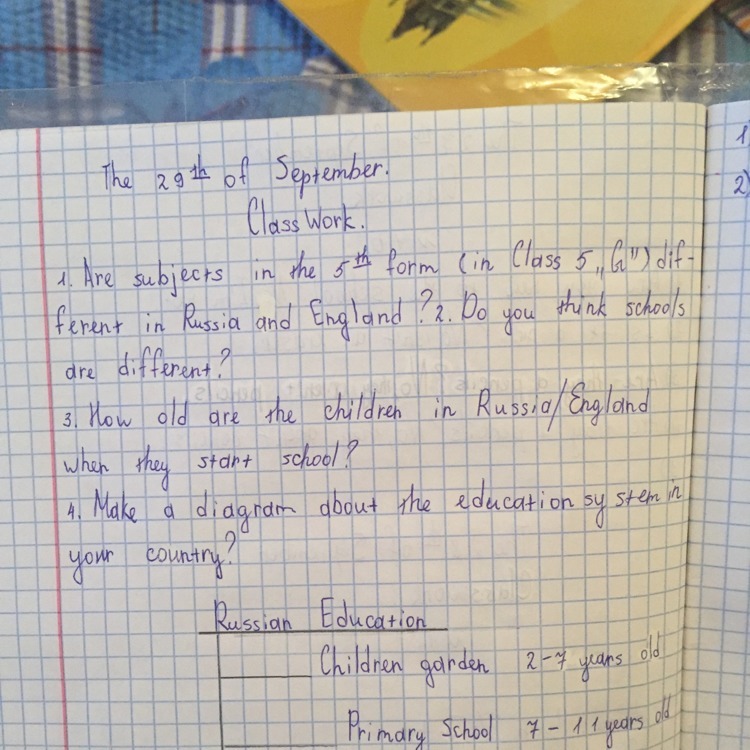 The 29th of September.
Class Work.
1. Are subjects in the 5th form (in Class 5 „G") dif-
ferent in Russia and England? 2. Do you think schools
are different?
3. How old are the children in Russia/England
when they start school?
4. Make a diagram about the education system in
your country?
Russian Education
Children garden 2-7 years old
Primary School 7 - 11 years old
1
2)